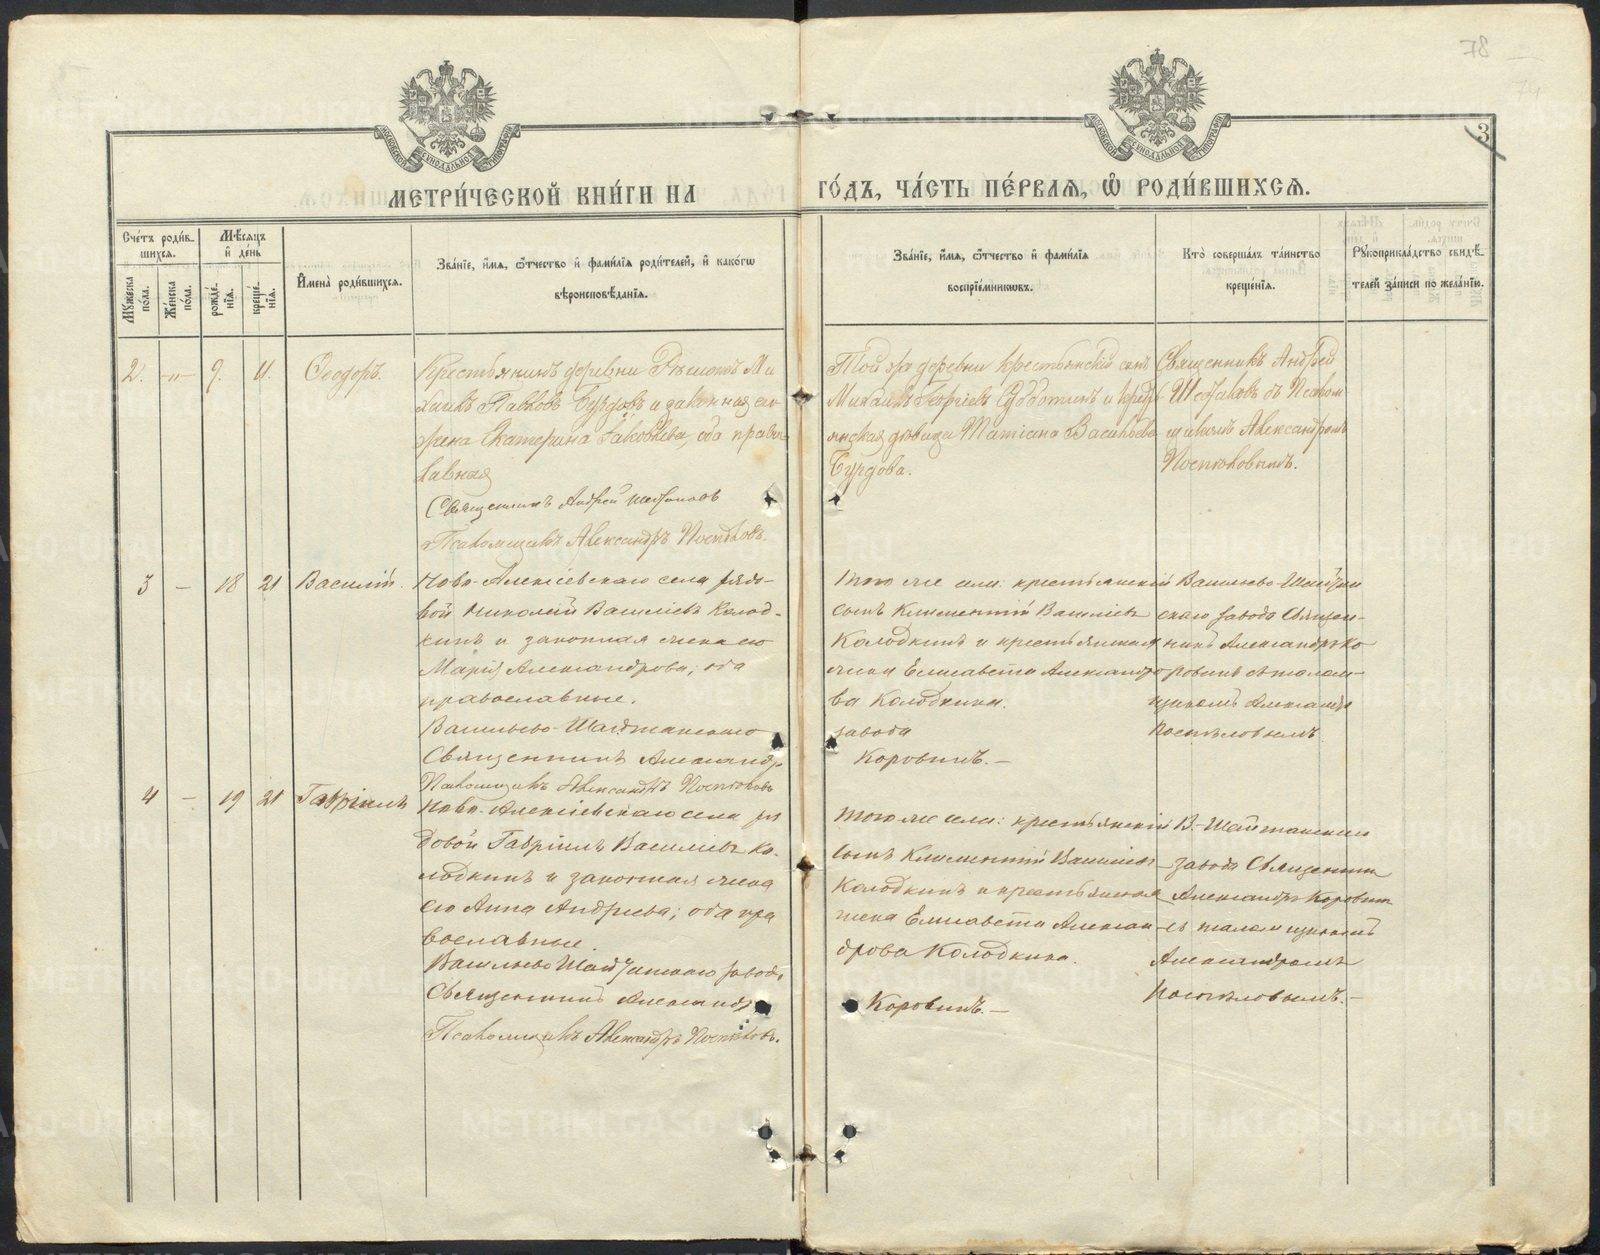 3
МЕТРИ́ЧЕСКОЙ КНИ́ГИ НА ГО́ДЪ, ЧА́СТЬ ПЕ́РВАЯ, Ѽ РОДИ́ВШИХСЯ.
Сче́тъ роди́в-
шихся.
Мѣ́сяцъ
и҆ де́нь
Мꙋ́жеска
по́ла.
Же́нска
по́ла.
рожде́-
нїѧ.
креще́-
нїѧ.
И҆мена̀ роди́вшихся.
Зва́нїе, и҆́мя, ѻ҆́тчество и҆ фами́лїѧ роди́телей, и҆ како́гѡ
вѣроисповѣ́данїѧ.
Зва́нїе, и҆́мя, ѻ҆́тчество и҆ фами́лїѧ
воспрїе́мникѡвъ.
Кто̀ соверша́лъ та́инство
креще́нїѧ.
Рꙋкоприкла́дство свидѣ́-
телей за́писи по жела́нїю.
2. -"- 9. 11. Ѳеодоръ.
Крестьянинъ деревни Рѣшотъ Ми
хаилъ Павловъ Бурдовъ и законная его
жена Екатерина Іаковлева, оба право
славная
Священникъ Андрей
Псаломщикъ Александръ Поспѣловъ.
Той же деревни крестьянскій сынъ
Михаилъ Георгіевъ Субботинъ и крест
янская дѣвица Татіана Васильева
Бурдова.
Священникъ Андрей
съ Псалом
щикомъ Александромъ
Поспѣловымъ.
3 - 18 21 Василій.
Ново-Алексіевскаго села рядо-
вой Николай Василіевъ Колод-
кинъ и законная жена его
Марія Александрова; оба
православные.
Васильево-Шайтанскаго
Священникъ Александръ
Псаломщикъ Александръ Поспѣловъ
того же села: крестьянскій
сынъ Климентій Василіевъ
Колодкинъ и крестьянская
жена Елисавета Александро
ва Колодкина.
завода
Коровинъ.-
Васильево-Шайтан
скаго завода Священ-
никъ Александръ Ко
ровинъ съ псалом-
щикомъ Александр
Поспѣловымъ
4 - 19 21 Гавріилъ
Ново-Алексіевскаго села ря
довой Гавріилъ Василіевъ Ко-
лодкинъ и законная жена
его Анна Андреева; оба пра
вославные.
Васильево Шайтанскаго завода
Священникъ Александръ
Псаломщикъ Александръ Поспѣловъ.
того же села: крестьянскій
сынъ Климентій Василіевъ
Колодкинъ и крестьянская
жена Елисавета Алексан
дрова Колодкина.
Коровинъ.-
В.-Шайтанскаго
завода Священникъ
Александръ Коровинъ
съ псаломщикомъ
Александромъ
Поспѣловымъ.-
METRIKI.GASO-URAL.RU